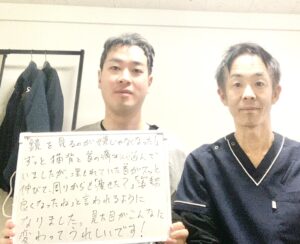 "鏡を見るのが嫌じゃなくなった!"
ずっと猫背と首の痛みに悩んで
いましたが、埋もれていた首がスッと
伸びて、周りから「痩せた?」「姿勢
良くなったね」と言われるように
なりました。見た目がこんなに
変わってうれしいです!